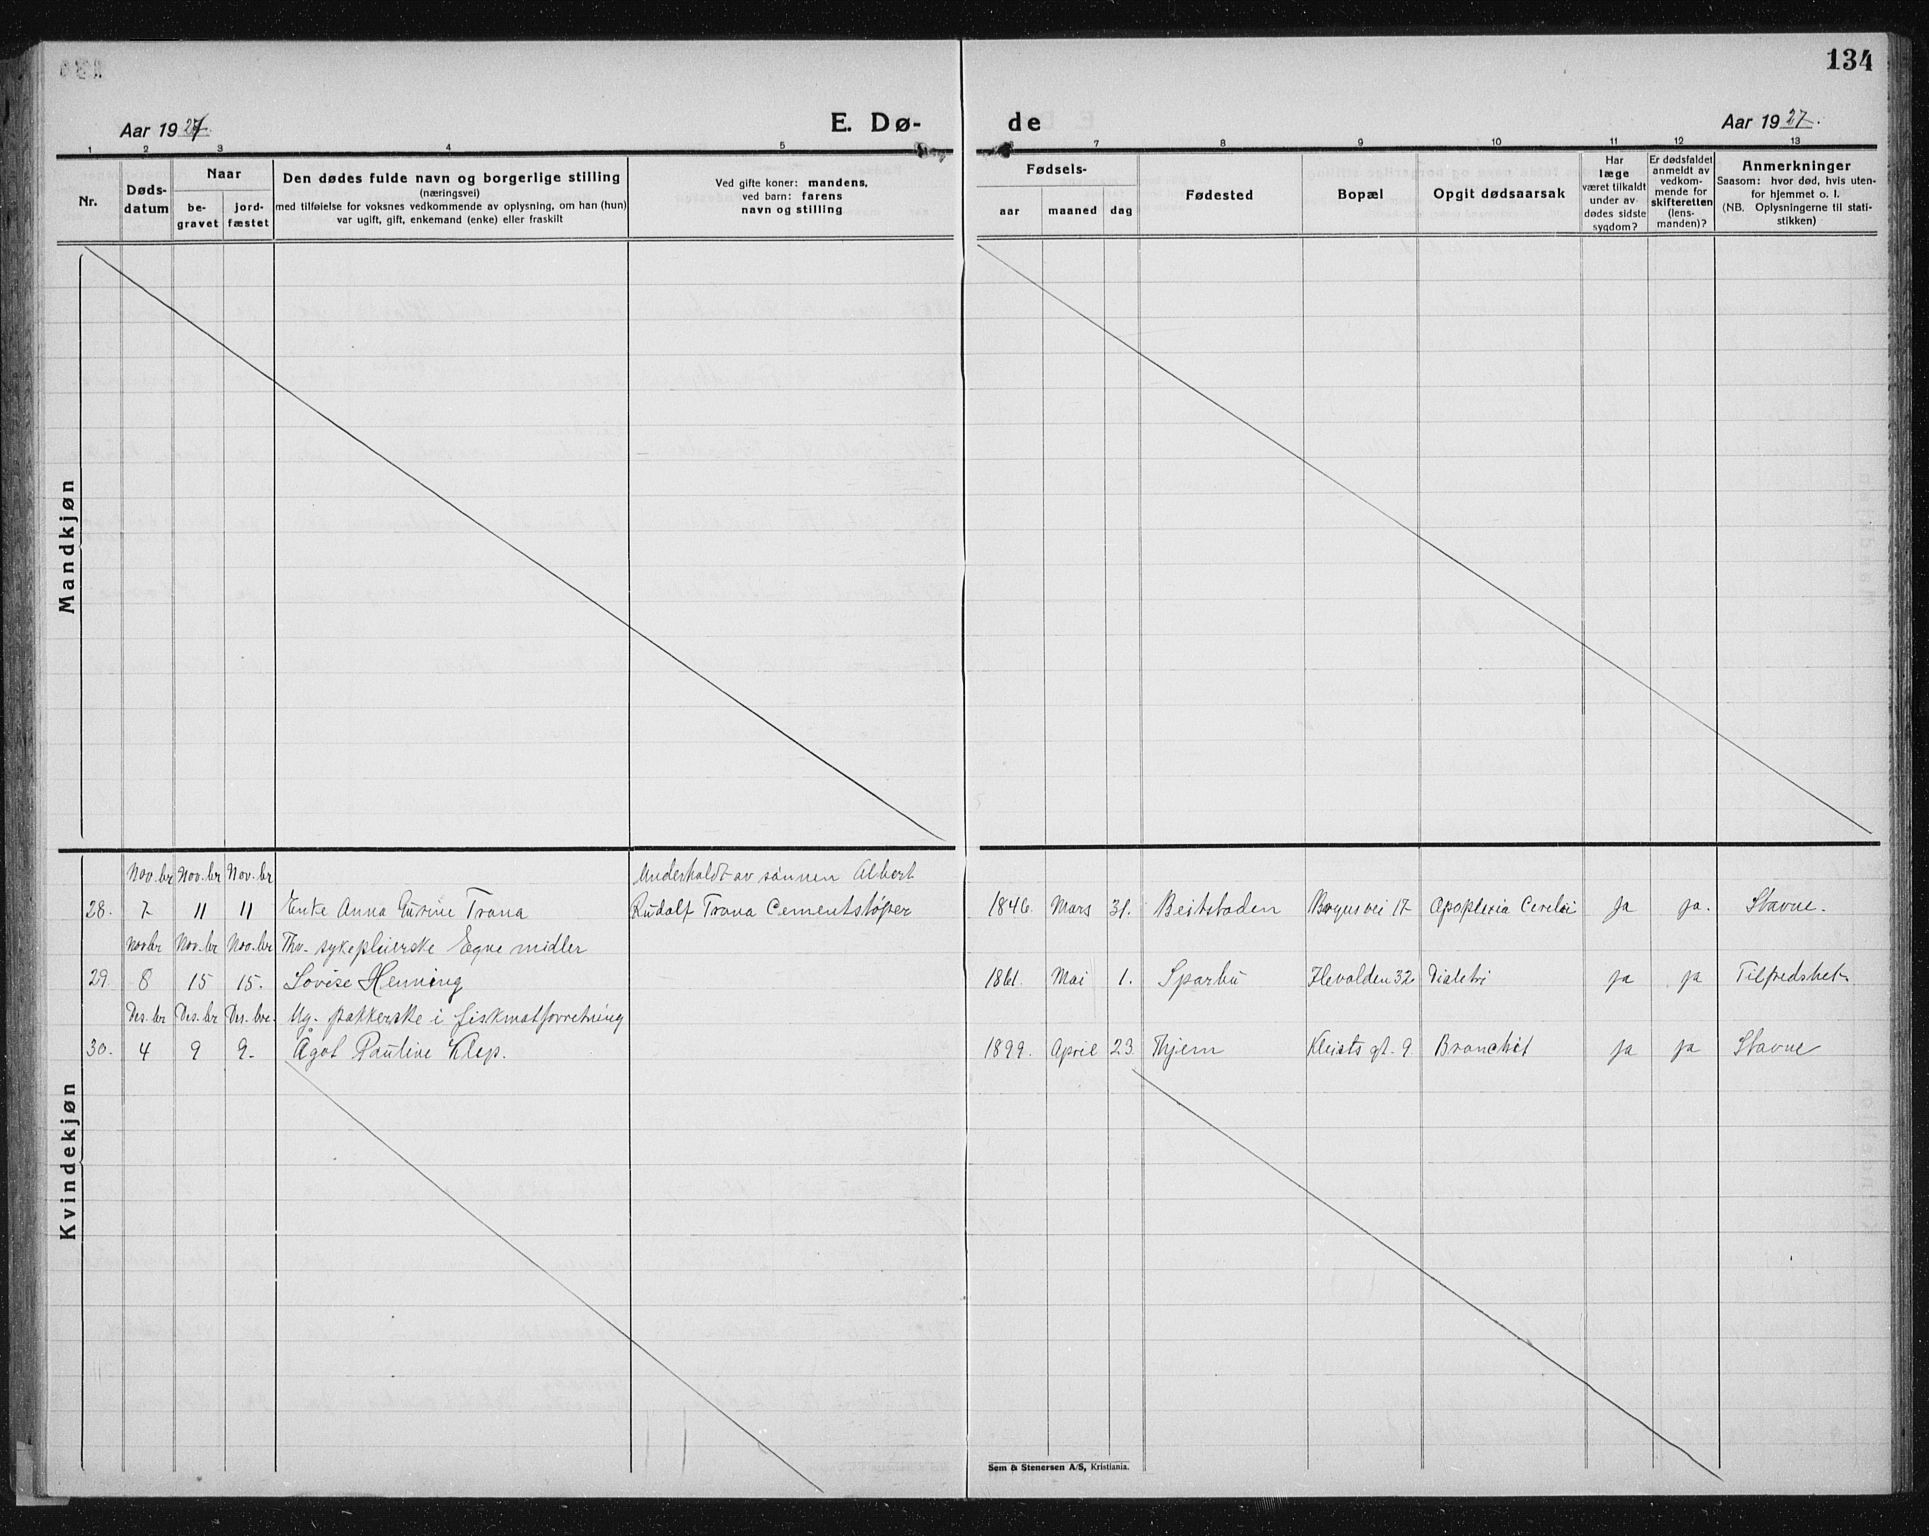 134
Aar 1927.
E. Dø-
de
Aar 1927.
1 2 3 4 5
7 8 9 10 11 12 13
Nr.
Døds-
datum
Naar
be-
gravet
jord-
fæstet
Den dødes fulde navn og borgerlige stilling
(næringsvei)
med tilføielse for voksnes vedkommende av oplysning, om han (hun)
var ugift, gift, enkemand (enke) eller fraskilt
Ved gifte koner: mandens,
ved barn: farens
navn og stilling
Fødsels-
aar maaned dag
Fødested
Bopæl
Opgit dødsaarsak
Har
læge
været tilkaldt
under av-
dødes sidste
sygdom?
Er dødsfaldet
anmeldt av
vedkom-
mende for
skifteretten
(lens-
manden)?
Anmerkninger
Saasom: hvor død, hvis uten-
for hjemmet o. l.
(NB. Oplysningerne til stati-
stikken)
Mandkjøn
Kvindekjøn
Nov.br Nov.br Nov.br Underholdt av sønnen Albert
28. 7 11 11 Enke Anna Gurine Trana Rudolf Trana Cementstøper 1846 Mars 31. Beitstaden 17 Apoplexia ja ja. Stavne.
Nov.br Nov.br Nov.br Thv. sykepleierske Egne midler
29. 8 15 15. Lovise Henning 1861 Mai 1. Sparbu Ilevolden 32 ja ja Tilfredshet
Des.br Des.br Des.bre. Ug. pakkerske i fiskmatforretning
30. 4 9 9. Ågot Pauline Klep. 1899. April 23 Kleists gt. 9 Bronchit ja ja Stavne
Sem & Stenersen A/S, Kristiania.